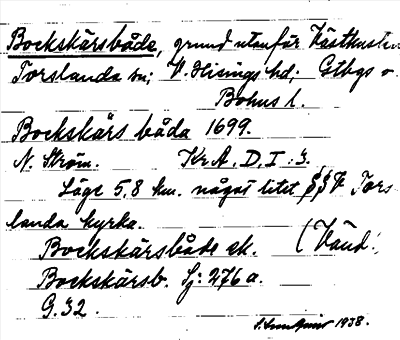 Bockskärsbåde, grund utanför Västkusten
Torslanda sn; V. Hisings hd; Gtbgs o.
Bohus l.
Bockskärs båda 1699.
N. Ström. KrA. D. I : 3.
Läge 5,8 km. något litet SSV Tors
landa kyrka.
Bockskärsbåde ek. (Vänd!)
Bockskärsb. Sj: 276 a.
G. 32.
1938.